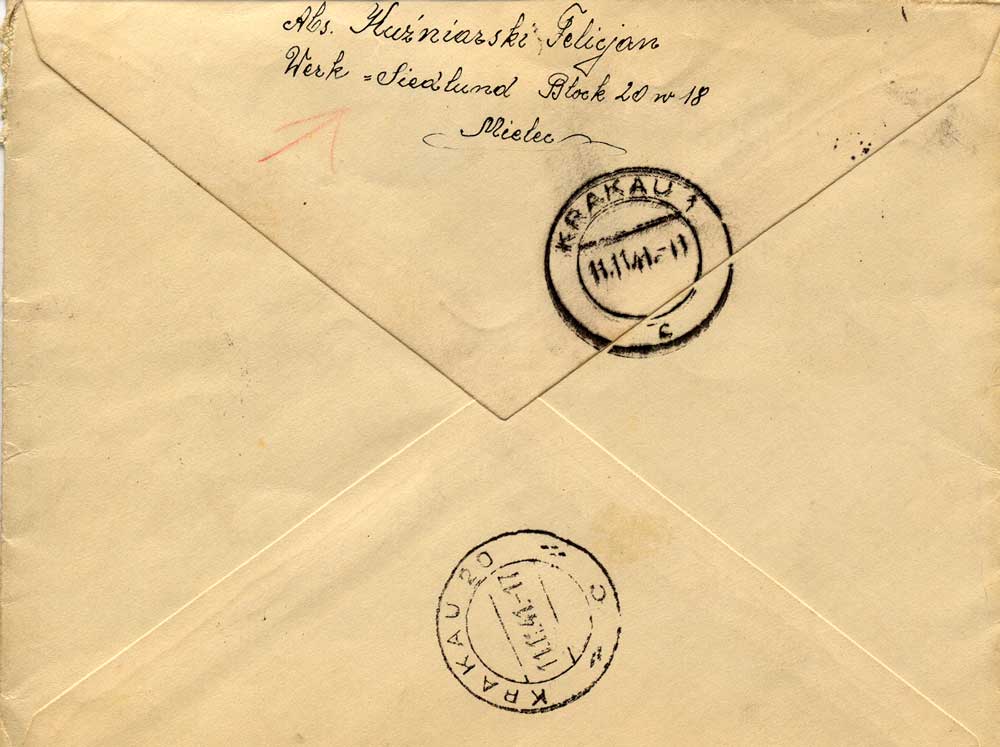 Abs. Kuźniarski Felicjan
Werk = Siedlund Block 20 w 18
Mielec
KRAKAU 1
11.11.41.-11
c
KRAKAU 20
11.11.41.-17
C